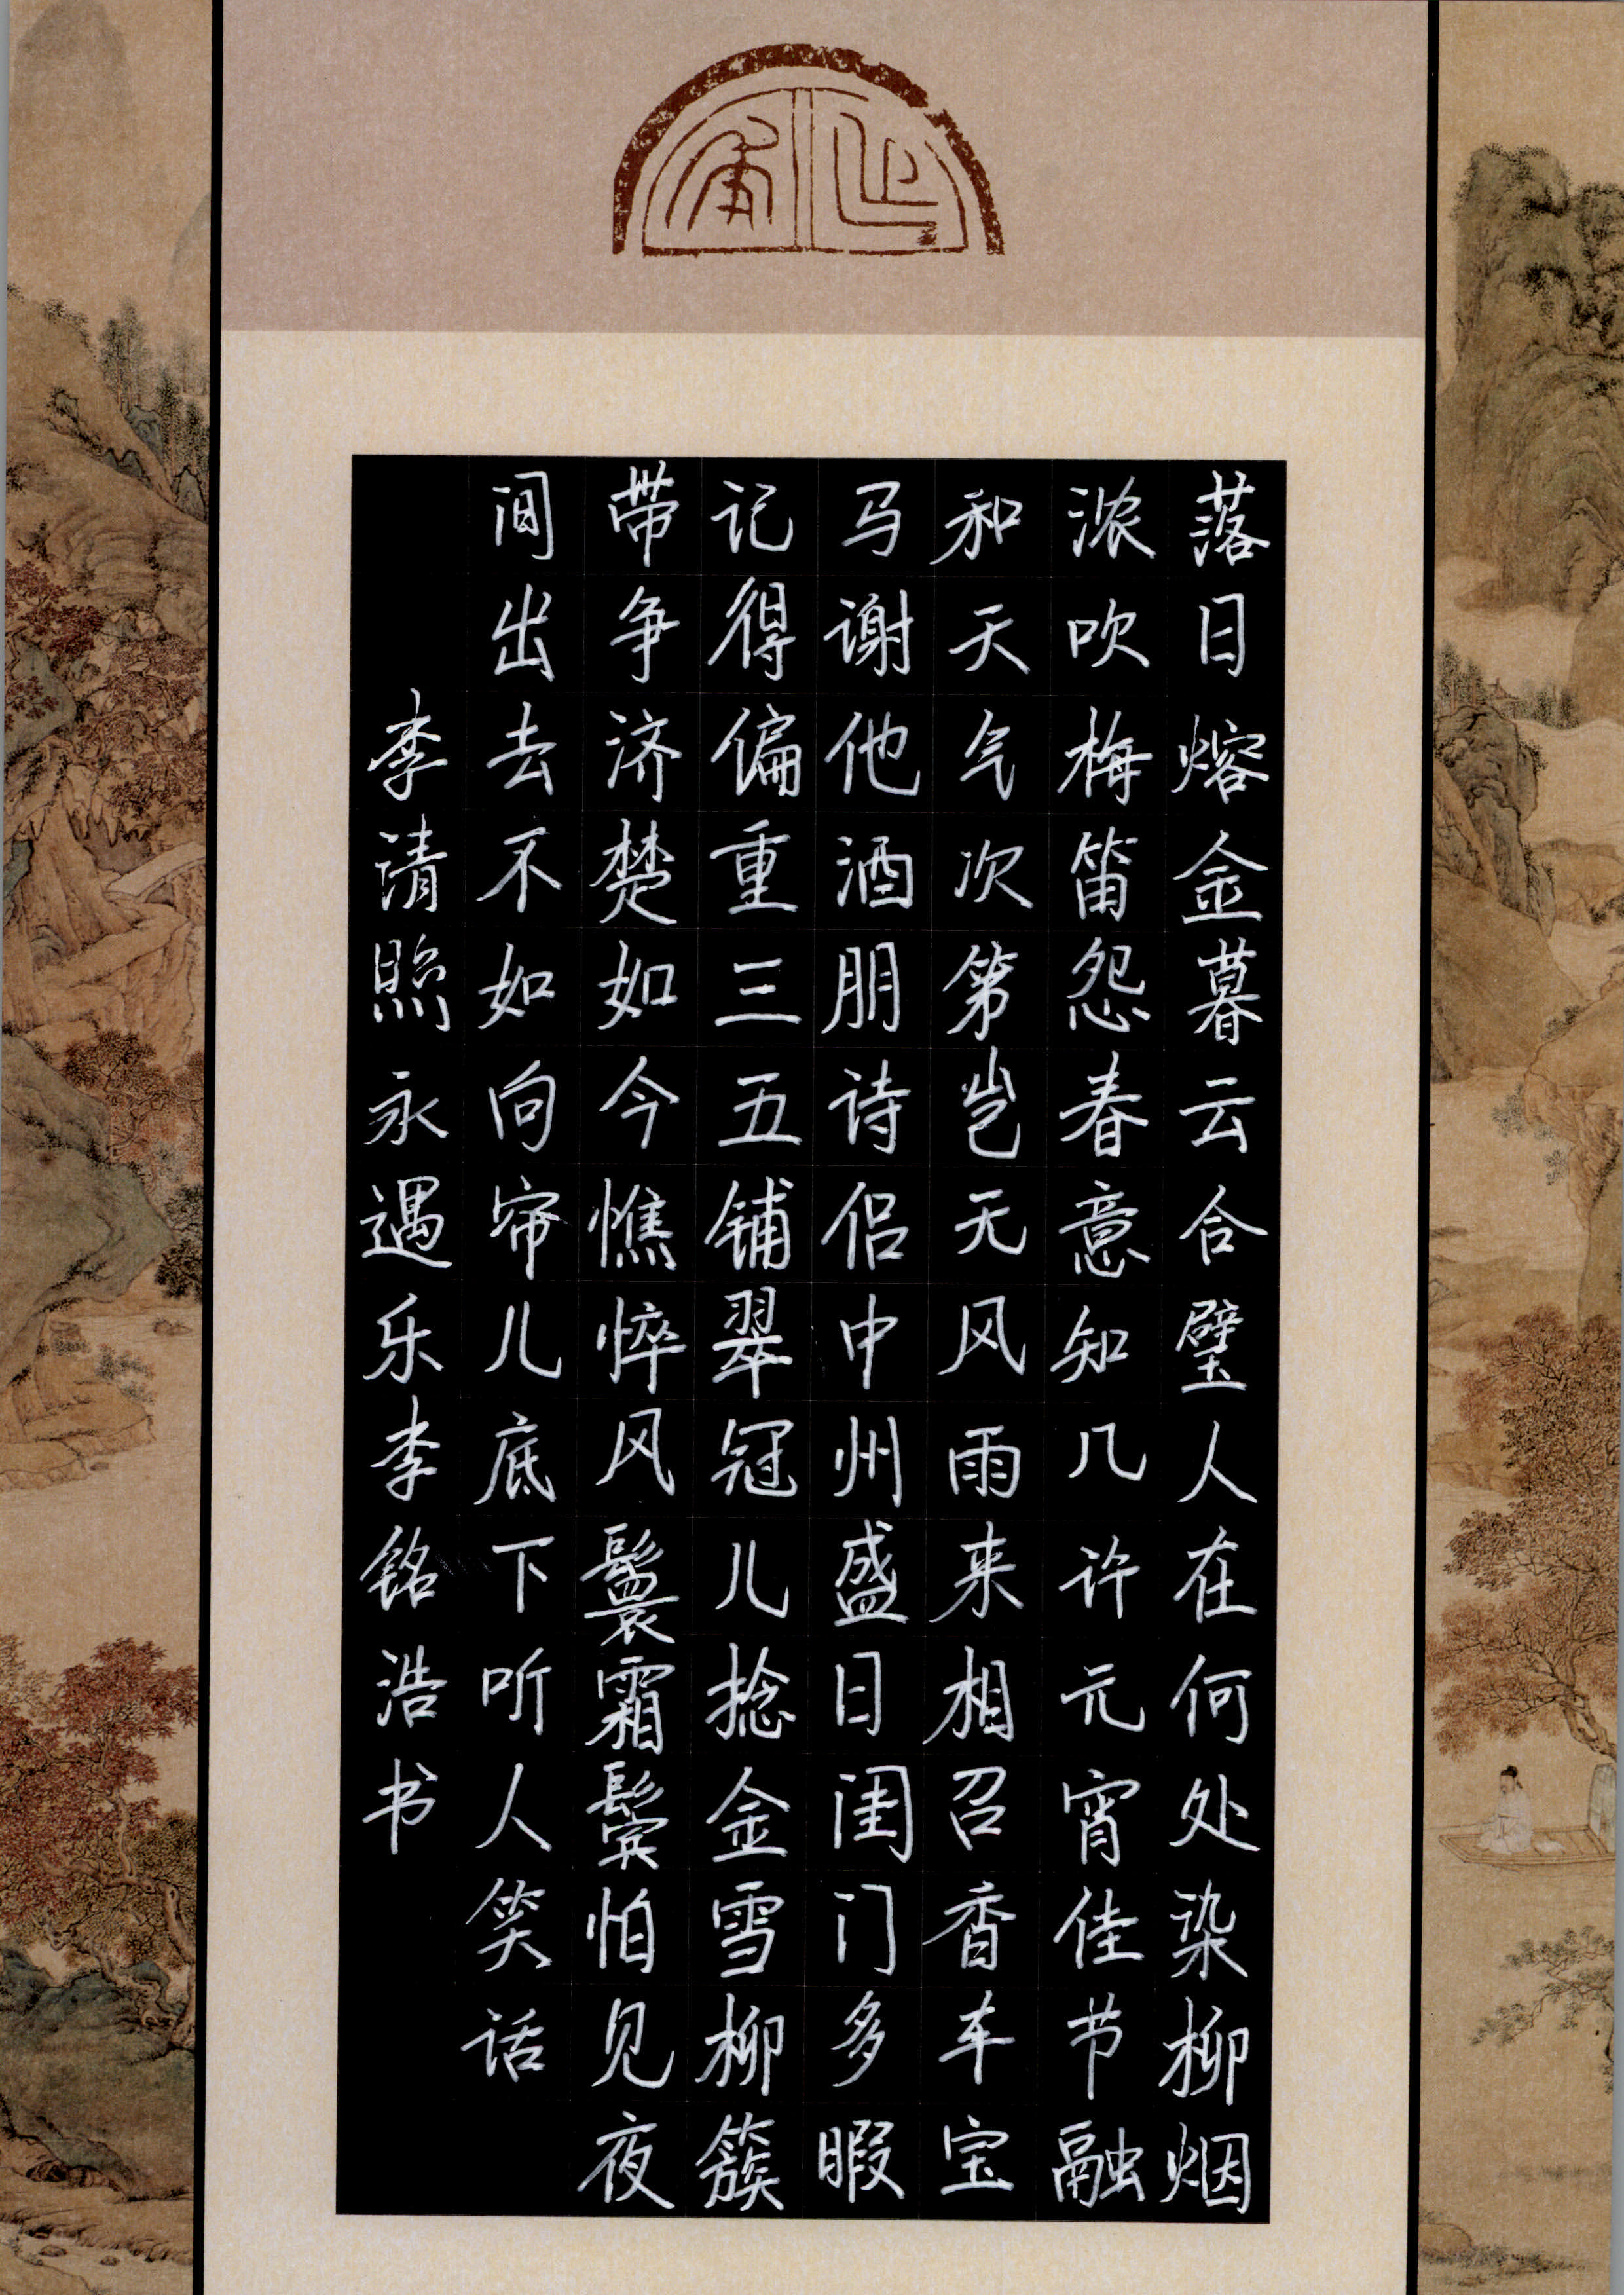 落日熔金暮云合璧人在何处染柳烟
浓吹梅笛怨春意知几许元宵佳节融
和天气次第岂无风雨来相召香车宝
马谢他酒朋诗侣中州盛日闺门多暇
记得偏重三五铺翠冠儿捻金雪柳簇
带争济楚如今憔悴风鬟霜鬓怕见夜
间出去不如向帘儿底下听人笑话
李请照永遇乐李铭浩书